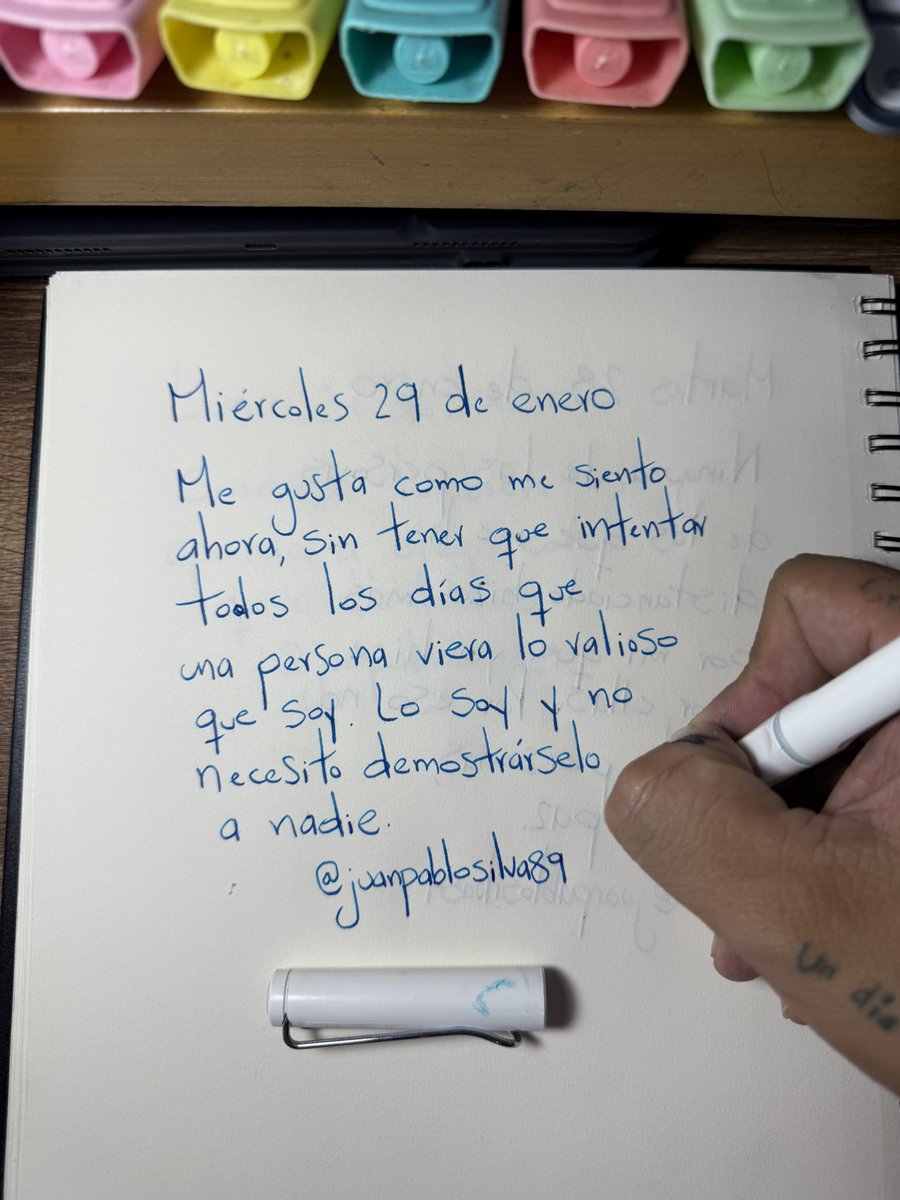 Miércoles 29 de enero
Me gusta como me siento
ahora, sin tener que intentar
todos los días que
una persona viera lo valioso
que soy. Lo soy y no
necesito demostrárselo
a nadie.
@juanpablosilva89
Un día